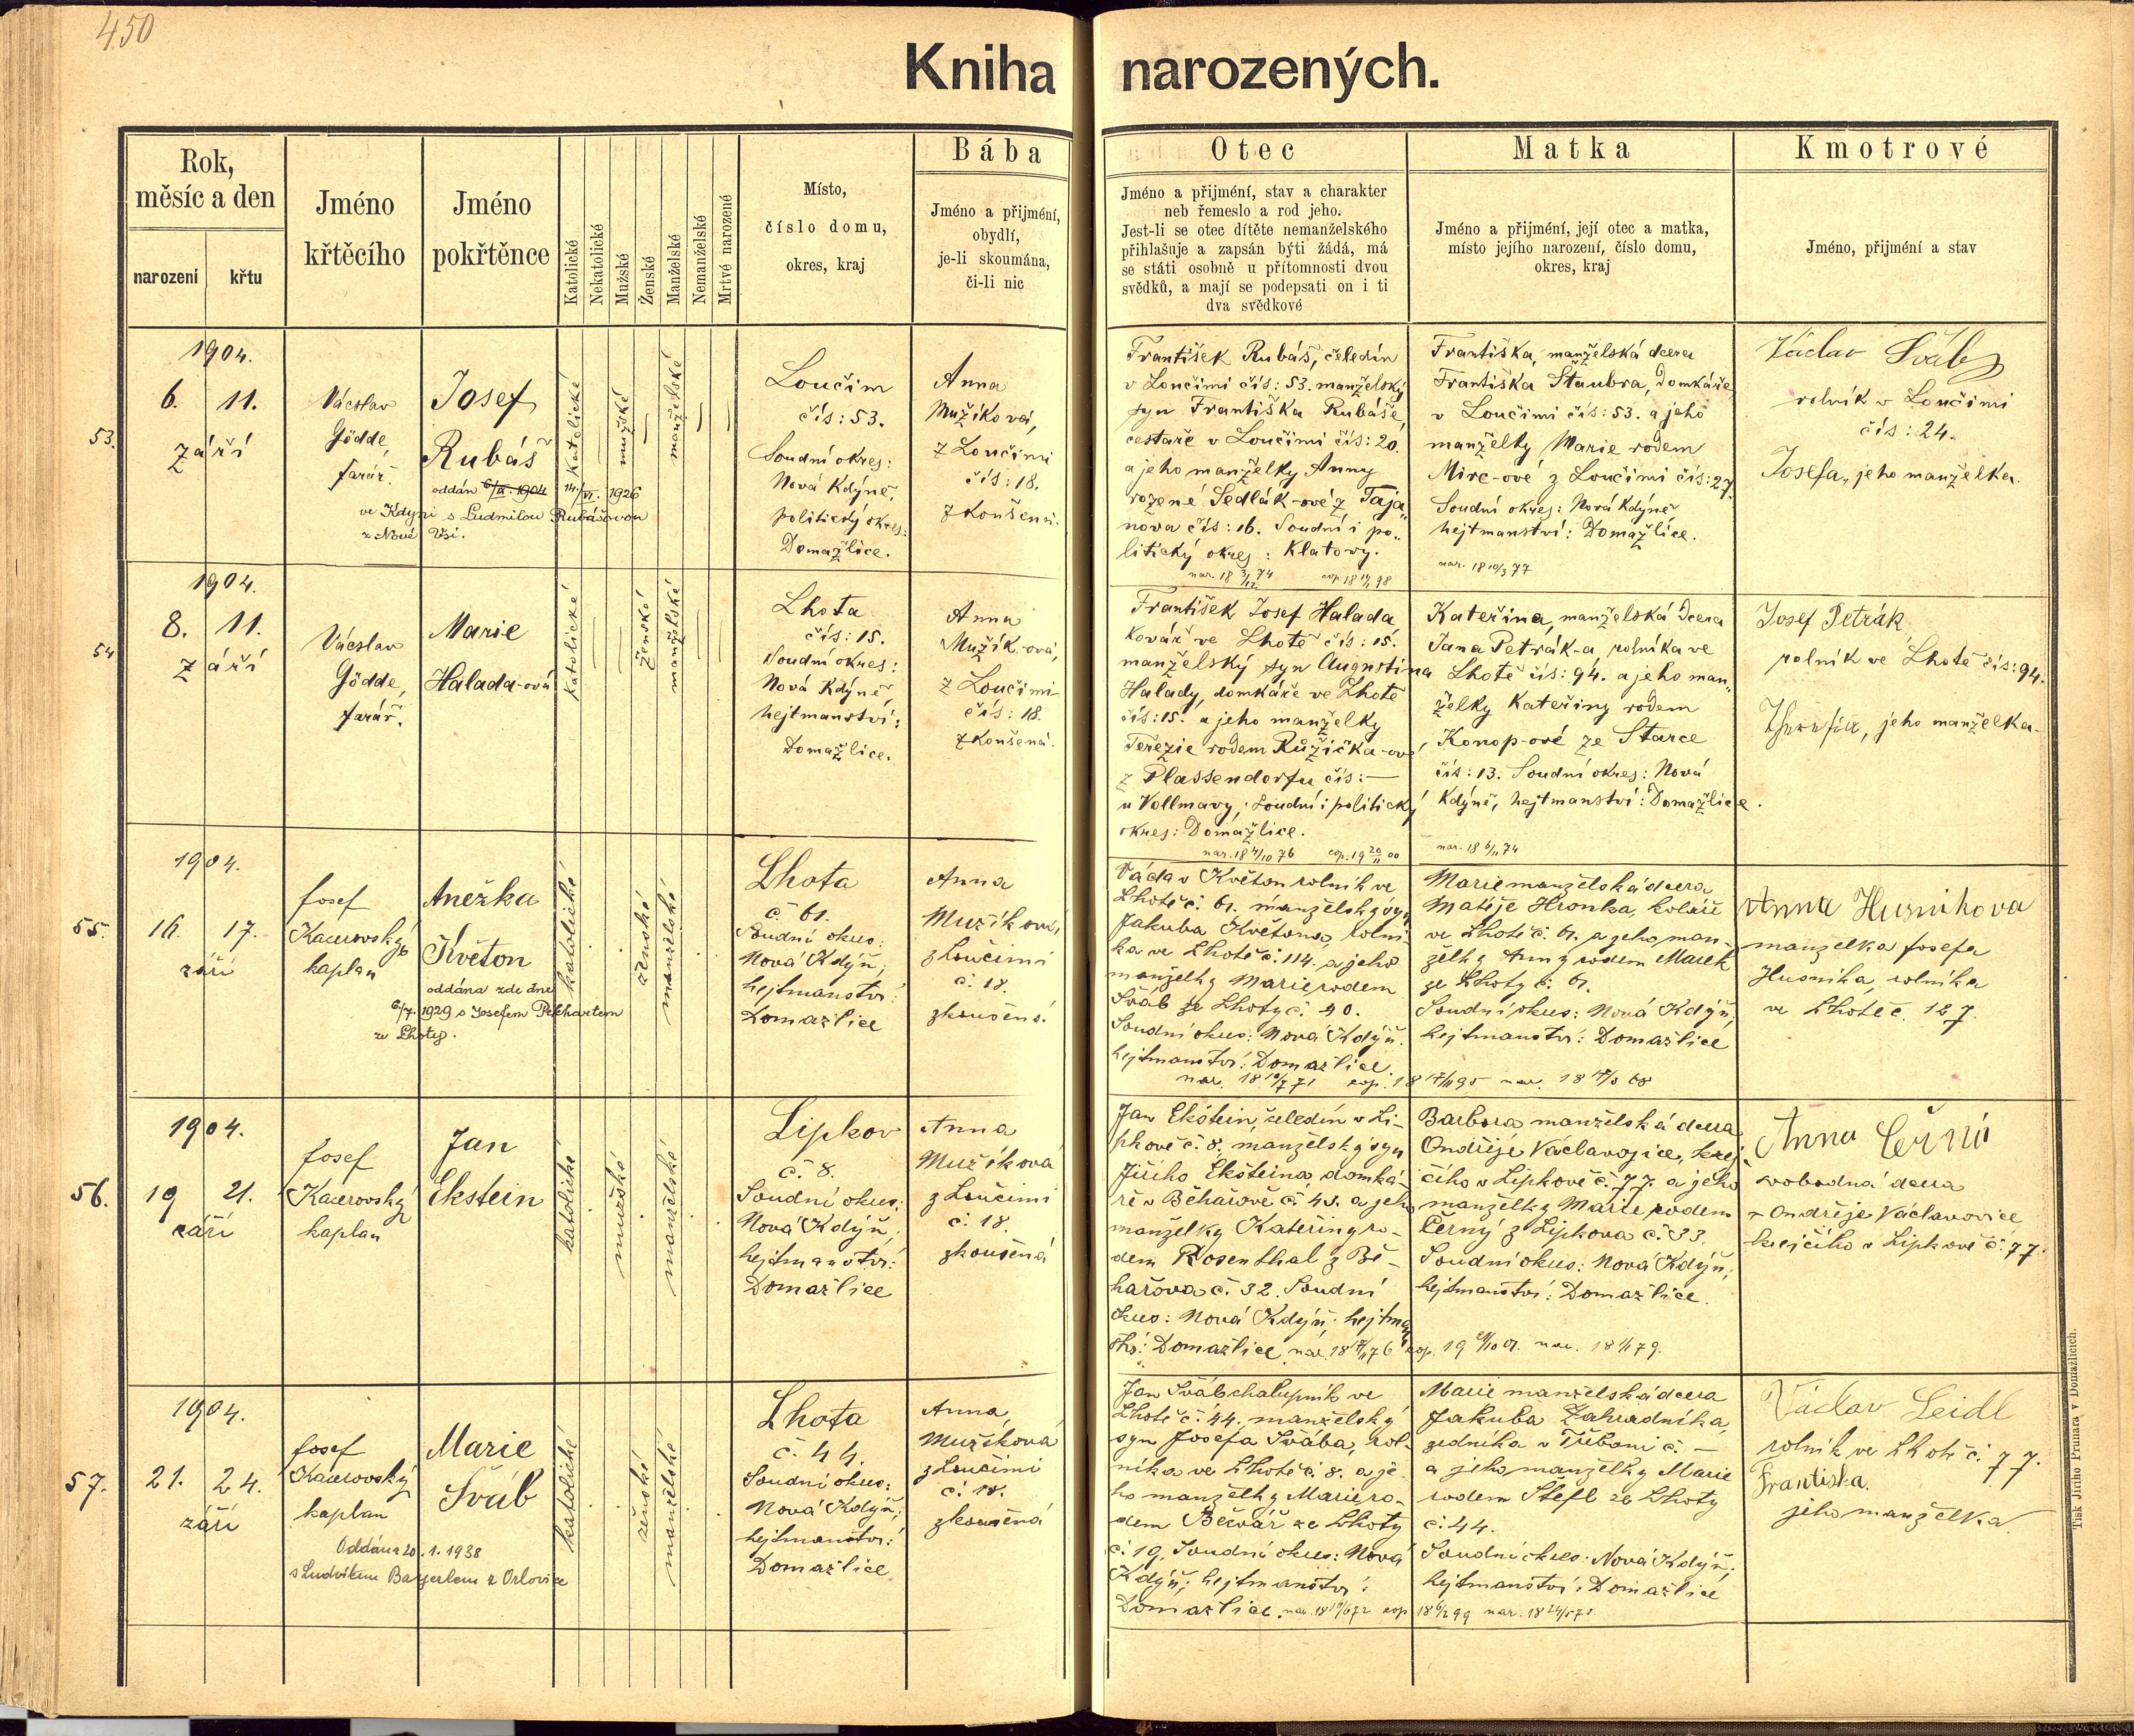 450
Kniha narozených.
Rok,
měsíc a den
narození
křtu
Jméno
křtěcího
Jméno
pokřtěnce
Katolické
Nekatolické
Mužské
Ženské
Manželské
Nemanželské
Mrtvé narozené
Místo,
číslo domu,
okres, kraj
Bába
Jméno a přijmění,
obydlí,
je-li skoumána,
či-li nic
Otec
Jméno a přijmění, stav a charakter
neb řemeslo a rod jeho.
Jest-li se otec dítěte nemanželského
přihlašuje a zapsán býti žádá, má
se státi osobně u přítomnosti dvou
svědků, a mají se podepsati on i ti
dva svědkové
Matka
Jméno a přijmění, její otec a matka,
místo jejího narození, číslo domu,
okres, kraj
Kmotrové
Jméno, přijmění a stav
53.
1904.
6. 11.
září
Václav
Gödde,
farář.
Josef
Rubáš
oddán 6/IX. 1904 14./VI. 1926
ve Kdyni s Ludmilou Rubášovou
z Nové Vsi.
Katolické
mužské
manželské
Loučim
čís: 53.
Soudní okres:
Nová Kdýně,
politický okres:
Domažlice.
Anna
Mužíková,
z Loučimi
čís: 18.
zkoušená.
František Rubáš, čeledín
v Loučimi čís: 53. manželský
syn Františka Rubáše,
cestaře v Loučimi čís: 20.
a jeho manželky Anny
rozené Sedlák-ové z Taja„
nova čís: 16. Soudní i po„
litický okres: Klatovy.
nar. 18 3/12 74 cop. 18 98
Františka, manželská dcera
Františka Staubra, domkáře
v Loučimi čís: 53. a jeho
manželky Marie rodem
Mirc-ové z Loučimi čís: 27.
Soudní okres: Nová Kdýně
hejtmanství: Domažlice.
nar. 18 10/3 77
Václav Šváb
rolník v Loučimi
čís: 24.
Josefa, jeho manželka.
54
1904.
8. 11.
září
Václav
Gödde,
farář.
Marie
Halada-ová
Katolické
ženské
manželské
Lhota
čís: 15.
Soudní okres:
Nová Kdýně
hejtmanství:
Domažlice.
Anna
Mužík-ová,
z Loučimi
čís: 18.
zkoušená.
František Josef Halada
kovář ve Lhotě čís: 15.
manželský syn Augustina
Halady, domkáře ve Lhotě
čís: 15. a jeho manželky
Terezie rodem Růžička-ové,
z Plassendorfu čís: —
u Vollmavy; soudní i politický
okres: Domažlice.
nar. 18 4/10 76 cop. 19 20/11 00
Kateřina, manželská dcera
Jana Petrák-a, rolníka ve
Lhotě čís: 94. a jeho man„
želky Kateřiny rodem
Konop-ové ze Starce
čís: 13. Soudní okres: Nová
Kdýně, hejtmanství: Domažlice.
nar. 18 6/11 74
Josef Petrák
rolník ve Lhotě čís: 94.
jeho manželka
55.
1904.
16. 17.
září
Josef
Kacerovský
kaplan
Anežka
Květon
oddána zde dne
6/7. 1929 s Josefem Pelhartem
ze Lhoty.
katolické
ženské
manželské
Lhota
č. 61.
Soudní okres:
Nová Kdýň;
hejtmanství:
Domažlice
Anna
Mužíková,
z Loučimi
č. 18.
zkoušená.
Václav Květon rolník ve
Lhotě č. 61. manželský syn
Jakuba Květona, rolní-
ka ve Lhotě č. 114. a jeho
manželky Marie rodem
Šváb ze Lhoty č. 40.
Soudní okres: Nová Kdýň;
hejtmanství: Domažlice.
nar. 18 10/7 71 cop. 18 17/11 95
Marie manželská dcera
Matěje Hronka, koláře
ve Lhotě č. 61. a jeho man-
želky Anny rodem Marek
ze Lhoty č. 61.
Soudní okres: Nová Kdýň;
hejtmanství: Domažlice
nar. 18 68
Anna Husníkova
manželka Josefa
Husníka, rolníka
ve Lhotě č. 127.
56.
1904.
19 21.
září
Josef
Kacerovský
kaplan
Jan
Ekstein
katolické
mužské
manželské
Lipkov
č. 8.
Soudní okres:
Nová Kdýň;
hejtmanství:
Domažlice
Anna
Mužíková
z Loučimi
č. 18.
zkoušená
Jan Ekstein, čeledín v Li-
pkově č. 8. manželský syn
Jiřího Eksteina, domká-
ře v Běhařově č. 43. a jeho
manželky Kateřiny ro-
dem Rosenthal z Bě-
hařova č. 32. Soudní
okres: Nová Kdýň; hejtman
ství: Domažlice. nar. 18 76 cop. 19 01.
Barbora manželská dcera
Ondřeje Václavovice, krej-
čího v Lipkově č. 77. a jeho
manželky Marie rodem
Černý z Lipkova č. 33.
Soudní okres: Nová Kdýň;
hejtmanství: Domažlice.
nar. 18 79.
Anna Černá
svobodná dcera
Ondřeje Václavovice
krejčího v Lipkově č. 77.
57.
1904.
21. 24.
září
Josef
Kacerovský
kaplan
Marie
Šváb
Oddána 20. 1. 1938
s Ludvíkem Bayerlem z Orlovice
katolické
ženské
manželské
Lhota
č. 44.
Soudní okres:
Nová Kdýň;
hejtmanství:
Domažlice
Anna
Mužíková
z Loučimi
č. 18.
zkoušená
Jan Šváb chalupník ve
Lhotě č. 44. manželský
syn Josefa Švába, rol-
níka ve Lhotě č. 8. a je-
ho manželky Marie ro-
dem Bečvář ze Lhoty
č. 19. Soudní okres: Nová
Kdýň; hejtmanství:
Domažlice. nar. 18 72 cop. 18 6/2 99
Marie manželská dcera
Jakuba Zahradníka,
zedníka v Třeboni č. —
a jeho manželky Marie
rodem Štefl ze Lhoty
č. 44.
Soudní okres: Nová Kdýň;
hejtmanství: Domažlice
Václav Leidl
rolník ve Lhotě č. 77.
Františka.
jeho manželka.
Tisk Jiřího Prunara v Domažlicích.